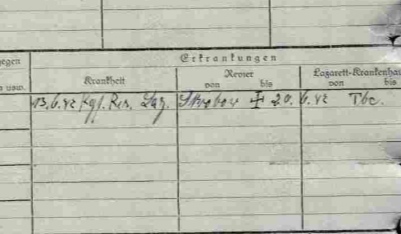 egen
Erkrankungen
Krankheit
Revier
Lazarett-Krankenhau
n usw.
von bis
von bis
13.6.42 Kgf. Res. Laz. ✝ 20.6.42 Tbc.